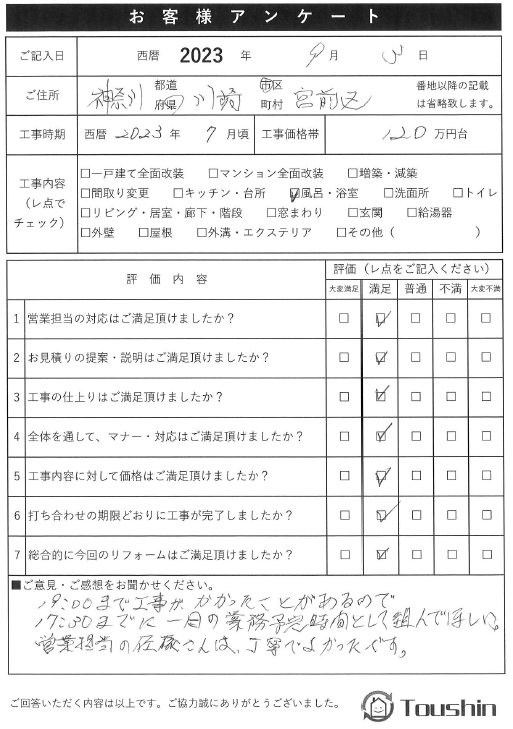 お客様アンケート
ご記入日 西暦 2023 年 9 月 3 日
ご住所 神奈川 都道府県 川崎 市区町村 宮前区 番地以降の記載は省略致します。
工事時期 西暦 2023 年 7 月頃 工事価格帯 120 万円台
工事内容（レ点でチェック）
□一戸建て全面改装 □マンション全面改装 □増築・減築
□間取り変更 □キッチン・台所 ☑風呂・浴室 □洗面所 □トイレ
□リビング・居室・廊下・階段 □窓まわり □玄関 □給湯器
□外壁 □屋根 □外溝・エクステリア □その他（ ）
評価内容 評価（レ点をご記入ください）
大変満足 満足 普通 不満 大変不満
1 営業担当の対応はご満足頂けましたか？ □ ☑ □ □ □
2 お見積りの提案・説明はご満足頂けましたか？ □ ☑ □ □ □
3 工事の仕上りはご満足頂けましたか？ □ ☑ □ □ □
4 全体を通して、マナー・対応はご満足頂けましたか？ □ ☑ □ □ □
5 工事内容に対して価格はご満足頂けましたか？ □ ☑ □ □ □
6 打ち合わせの期限どおりに工事が完了しましたか？ □ ☑ □ □ □
7 総合的に今回のリフォームはご満足頂けましたか？ □ ☑ □ □ □
■ご意見・ご感想をお聞かせください。
19:00まで工事がかかったことがあるので
17:30までに一日の業務予定時間として組んでほしい。
営業担当の佐藤さんは、丁寧でよかったです。
ご回答いただく内容は以上です。ご協力誠にありがとうございました。
Toushin